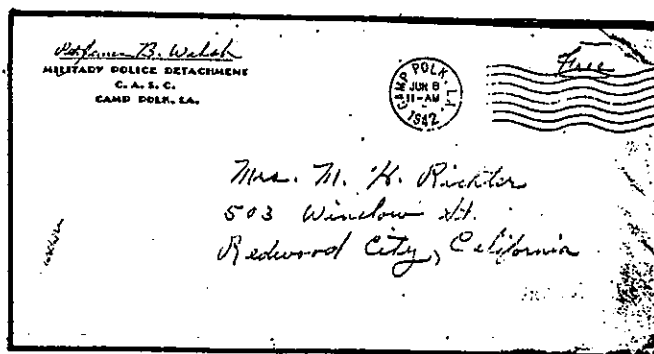 Pvt. James B. Walsh
MILITARY POLICE DETACHMENT
C. A. S. C.
CAMP POLK, LA.
CAMP POLK, LA.
JUN 8
11-AM
1942
Free
Mrs. M. H. Richter
503 Winslow St.
Redwood City, California